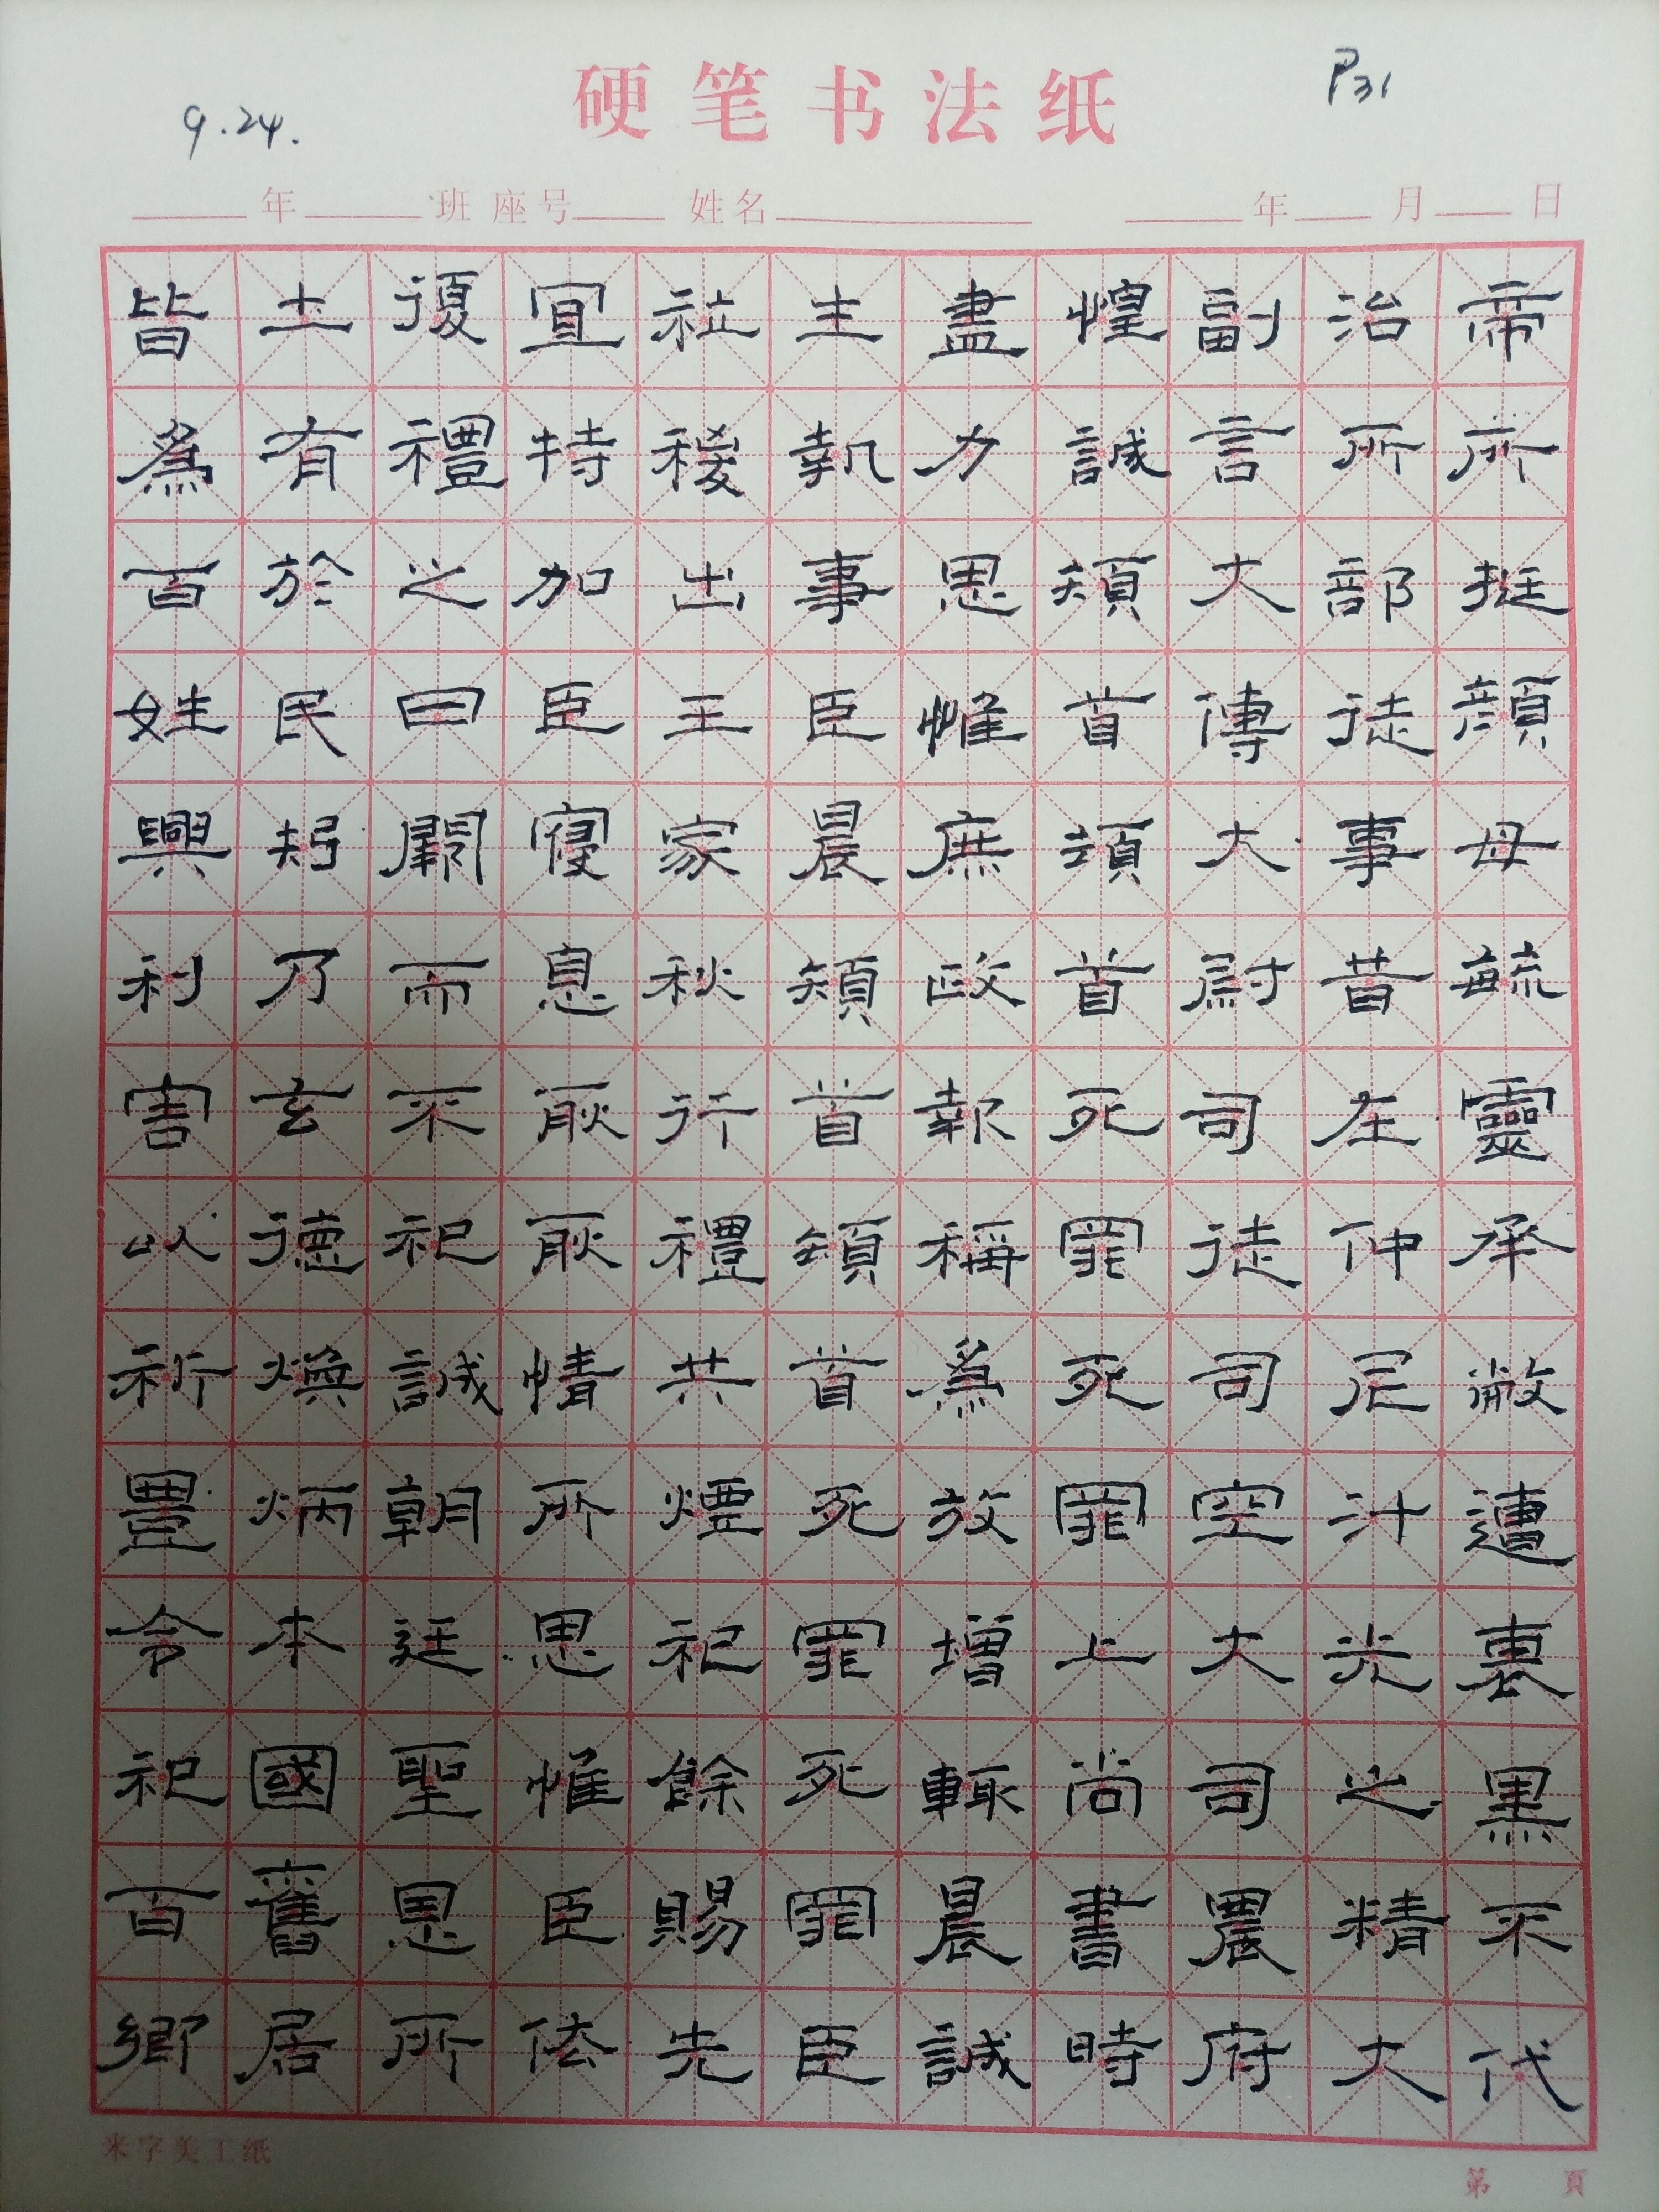 硬笔书法纸
9.24.
P31
年 班 座号 姓名 年 月 日
帝所挺顏母毓靈承敝遭衰黑不代
治所部徒事昔在仲尼汁光之精大
副言大傅大尉司徒司空大司農府
煌誠頓首頓首死罪死罪上尚書時
盡力思惟庶政報稱為放增輒晨誠
主執事臣晨頓首頓首死罪死罪臣
社稷出王家秋行禮共煙祀餘賜先
宜特加臣寑息耿耿情所思惟臣依
復禮之曰闕而不祀誠朝廷聖恩所
土有於民矧乃玄德煥炳本國舊居
皆為百姓興利害以祈豐令祀百鄉
米字美工纸
第 頁